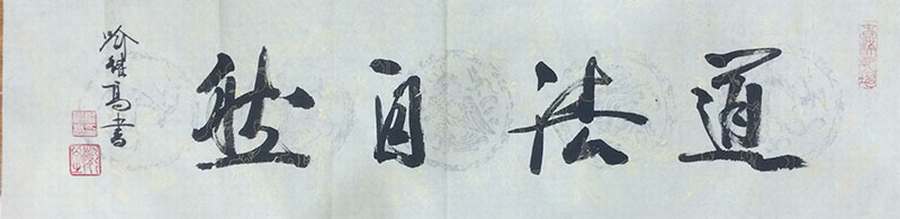 道法自然
高書